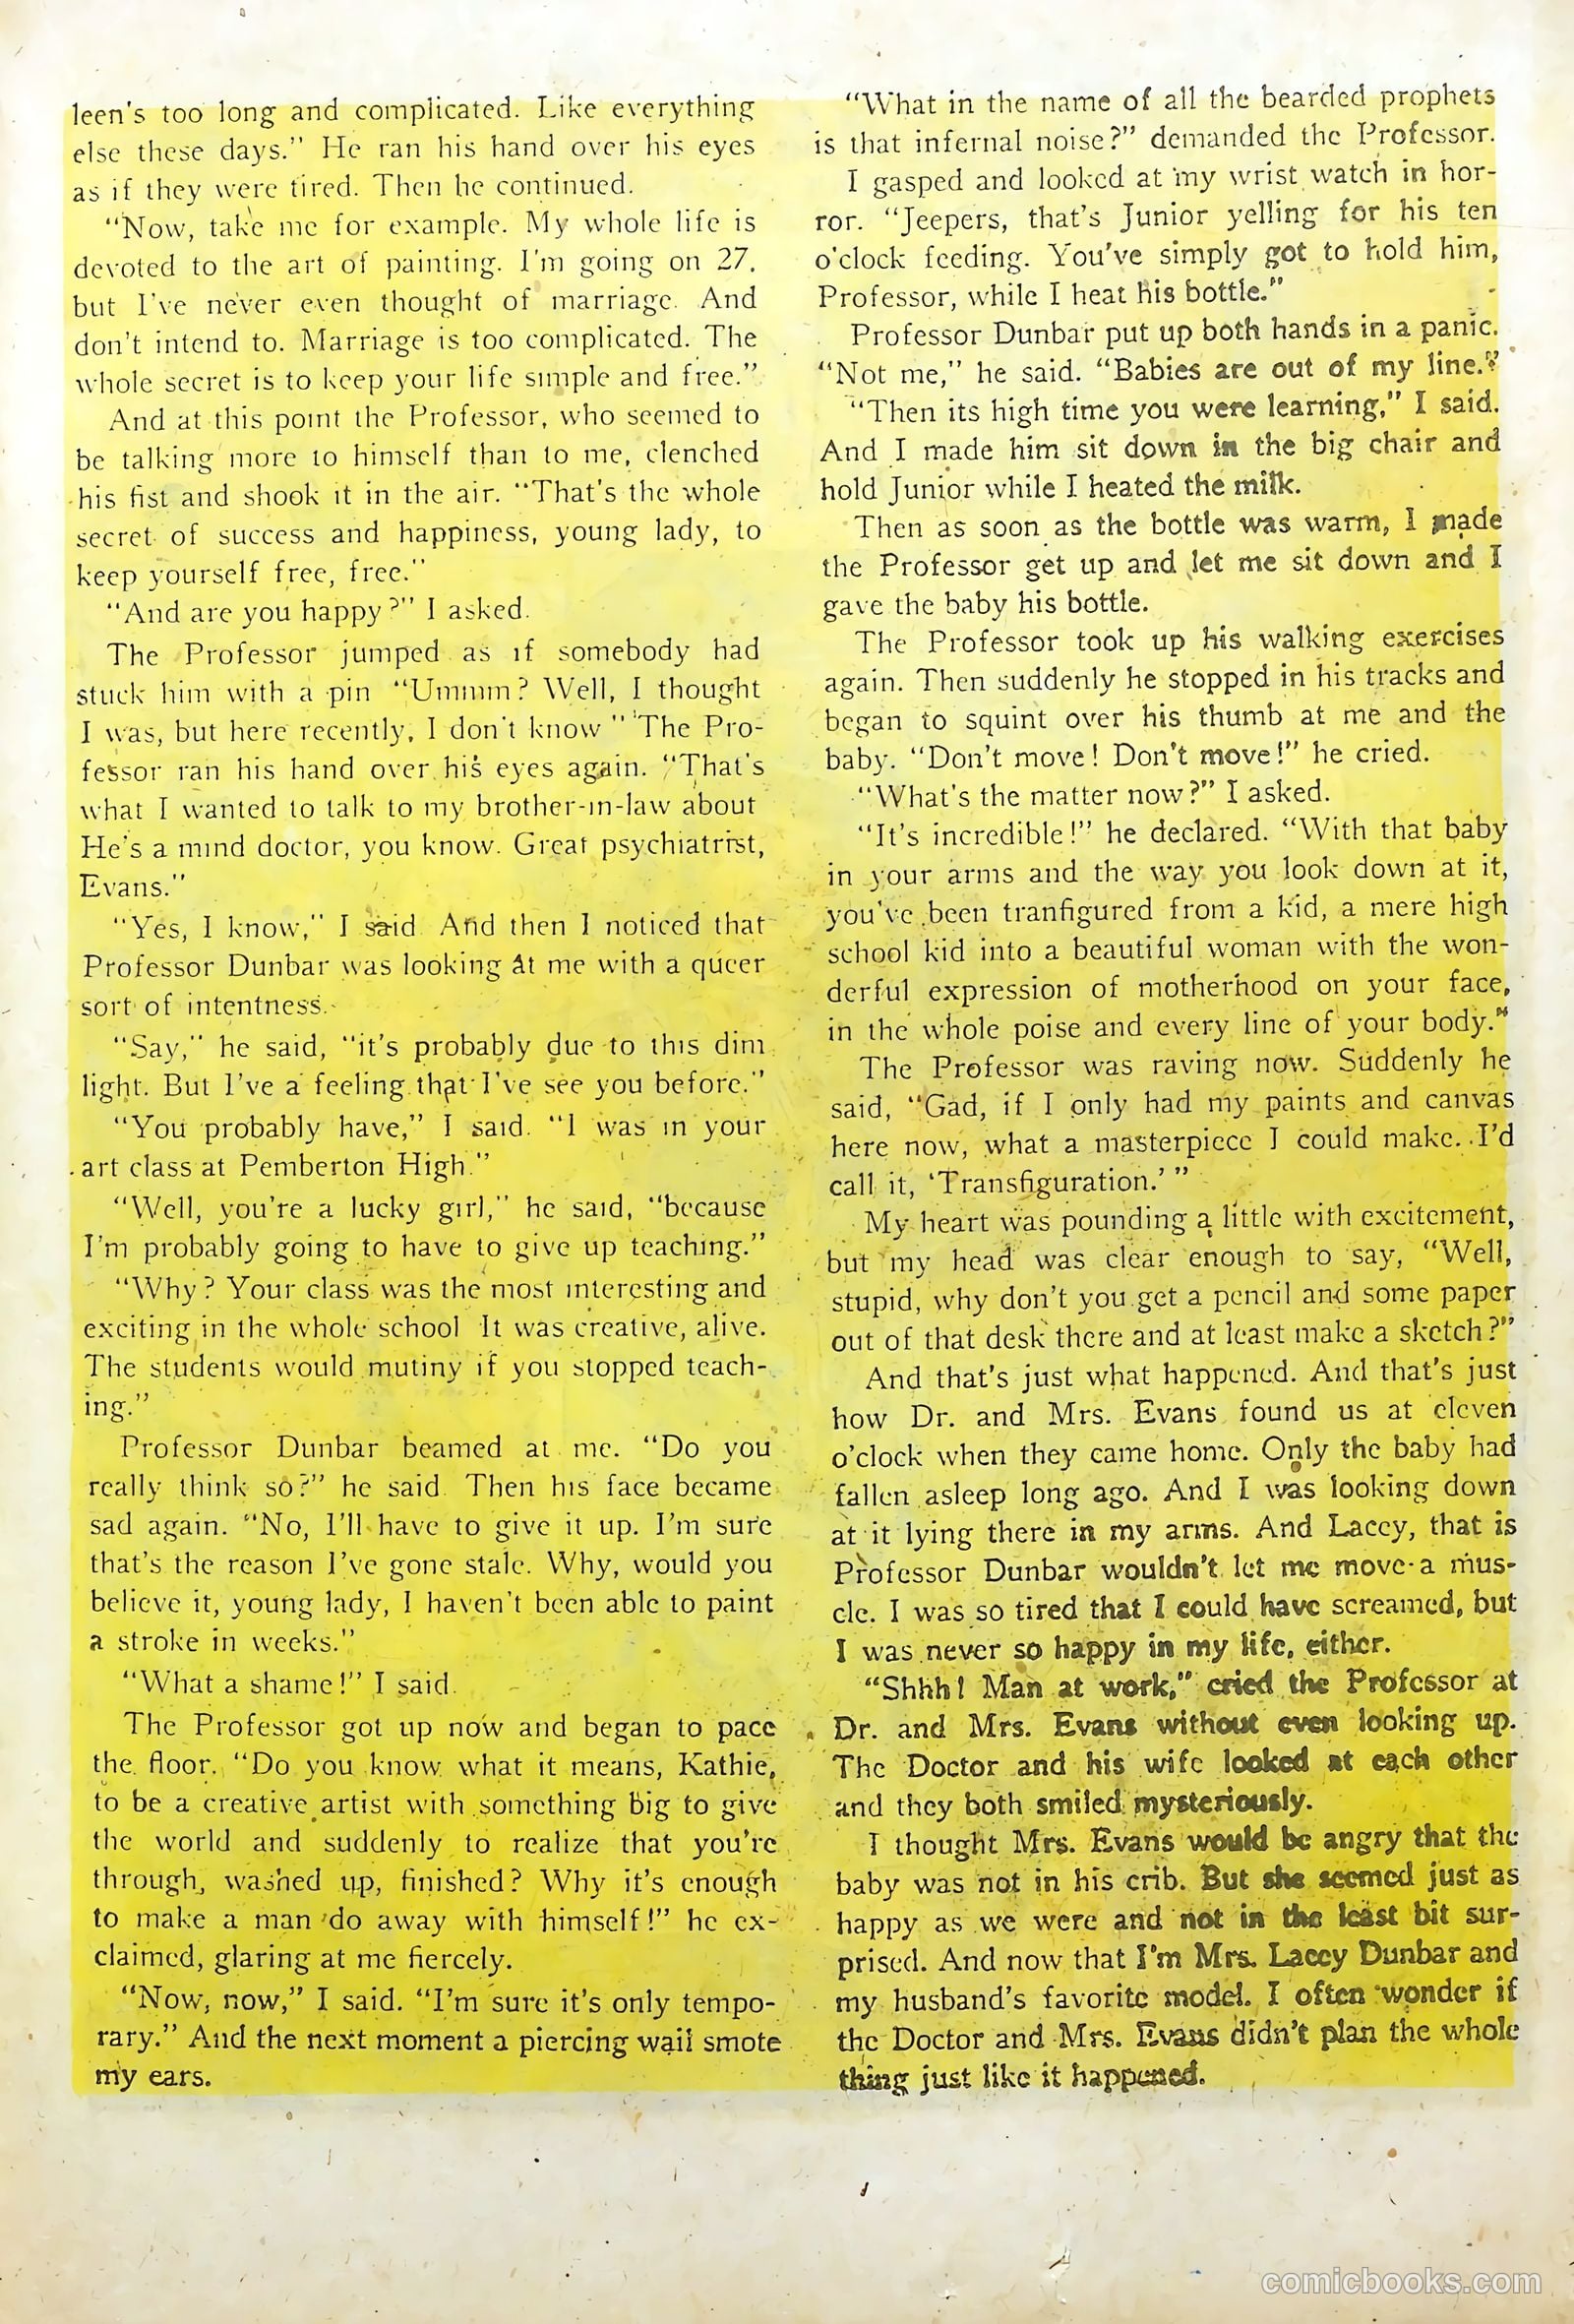 leen's too long and complicated. Like everything
else these days." He ran his hand over his eyes
as if they were tired. Then he continued.
"Now, take me for example. My whole life is
devoted to the art of painting. I'm going on 27,
but I've never even thought of marriage. And
don't intend to. Marriage is too complicated. The
whole secret is to keep your life simple and free."
And at this point the Professor, who seemed to
be talking more to himself than to me, clenched
his fist and shook it in the air. "That's the whole
secret of success and happiness, young lady, to
keep yourself free, free."
"And are you happy?" I asked.
The Professor jumped as if somebody had
stuck him with a pin "Ummm? Well, I thought
I was, but here recently, I don't know" The Pro-
fessor ran his hand over his eyes again. "That's
what I wanted to talk to my brother-in-law about
He's a mind doctor, you know. Great psychiatrist,
Evans."
"Yes, I know," I said. And then I noticed that
Professor Dunbar was looking at me with a queer
sort of intentness.
"Say," he said, "it's probably due to this dim
light. But I've a feeling that I've see you before."
"You probably have," I said. "I was in your
art class at Pemberton High."
"Well, you're a lucky girl," he said, "because
I'm probably going to have to give up teaching."
"Why? Your class was the most interesting and
exciting in the whole school It was creative, alive.
The students would mutiny if you stopped teach-
ing."
Professor Dunbar beamed at me. "Do you
really think so?" he said. Then his face became
sad again. "No, I'll have to give it up. I'm sure
that's the reason I've gone stale. Why, would you
believe it, young lady, I haven't been able to paint
a stroke in weeks."
"What a shame!" I said.
The Professor got up now and began to pace
the floor. "Do you know what it means, Kathie,
to be a creative artist with something big to give
the world and suddenly to realize that you're
through, washed up, finished? Why it's enough
to make a man do away with himself!" he ex-
claimed, glaring at me fiercely.
"Now, now," I said. "I'm sure it's only tempo-
rary." And the next moment a piercing wail smote
my ears.
"What in the name of all the bearded prophets
is that infernal noise?" demanded the Professor.
I gasped and looked at my wrist watch in hor-
ror. "Jeepers, that's Junior yelling for his ten
o'clock feeding. You've simply got to hold him,
Professor, while I heat his bottle."
Professor Dunbar put up both hands in a panic.
"Not me," he said. "Babies are out of my line."
"Then its high time you were learning," I said.
And I made him sit down in the big chair and
hold Junior while I heated the milk.
Then as soon as the bottle was warm, I made
the Professor get up and let me sit down and I
gave the baby his bottle.
The Professor took up his walking exercises
again. Then suddenly he stopped in his tracks and
began to squint over his thumb at me and the
baby. "Don't move! Don't move!" he cried.
"What's the matter now?" I asked.
"It's incredible!" he declared. "With that baby
in your arms and the way you look down at it,
you've been tranfigured from a kid, a mere high
school kid into a beautiful woman with the won-
derful expression of motherhood on your face,
in the whole poise and every line of your body."
The Professor was raving now. Suddenly he
said, "Gad, if I only had my paints and canvas
here now, what a masterpiece I could make. I'd
call it, 'Transfiguration.' "
My heart was pounding a little with excitement,
but my head was clear enough to say, "Well,
stupid, why don't you get a pencil and some paper
out of that desk there and at least make a sketch?"
And that's just what happened. And that's just
how Dr. and Mrs. Evans found us at eleven
o'clock when they came home. Only the baby had
fallen asleep long ago. And I was looking down
at it lying there in my arms. And Lacey, that is
Professor Dunbar wouldn't let me move a mus-
cle. I was so tired that I could have screamed, but
I was never so happy in my life, either.
"Shhh! Man at work," cried the Professor at
Dr. and Mrs. Evans without even looking up.
The Doctor and his wife looked at each other
and they both smiled mysteriously.
I thought Mrs. Evans would be angry that the
baby was not in his crib. But she seemed just as
happy as we were and not in the least bit sur-
prised. And now that I'm Mrs. Lacey Dunbar and
my husband's favorite model. I often wonder if
the Doctor and Mrs. Evans didn't plan the whole
thing just like it happened.
comicbooks.com